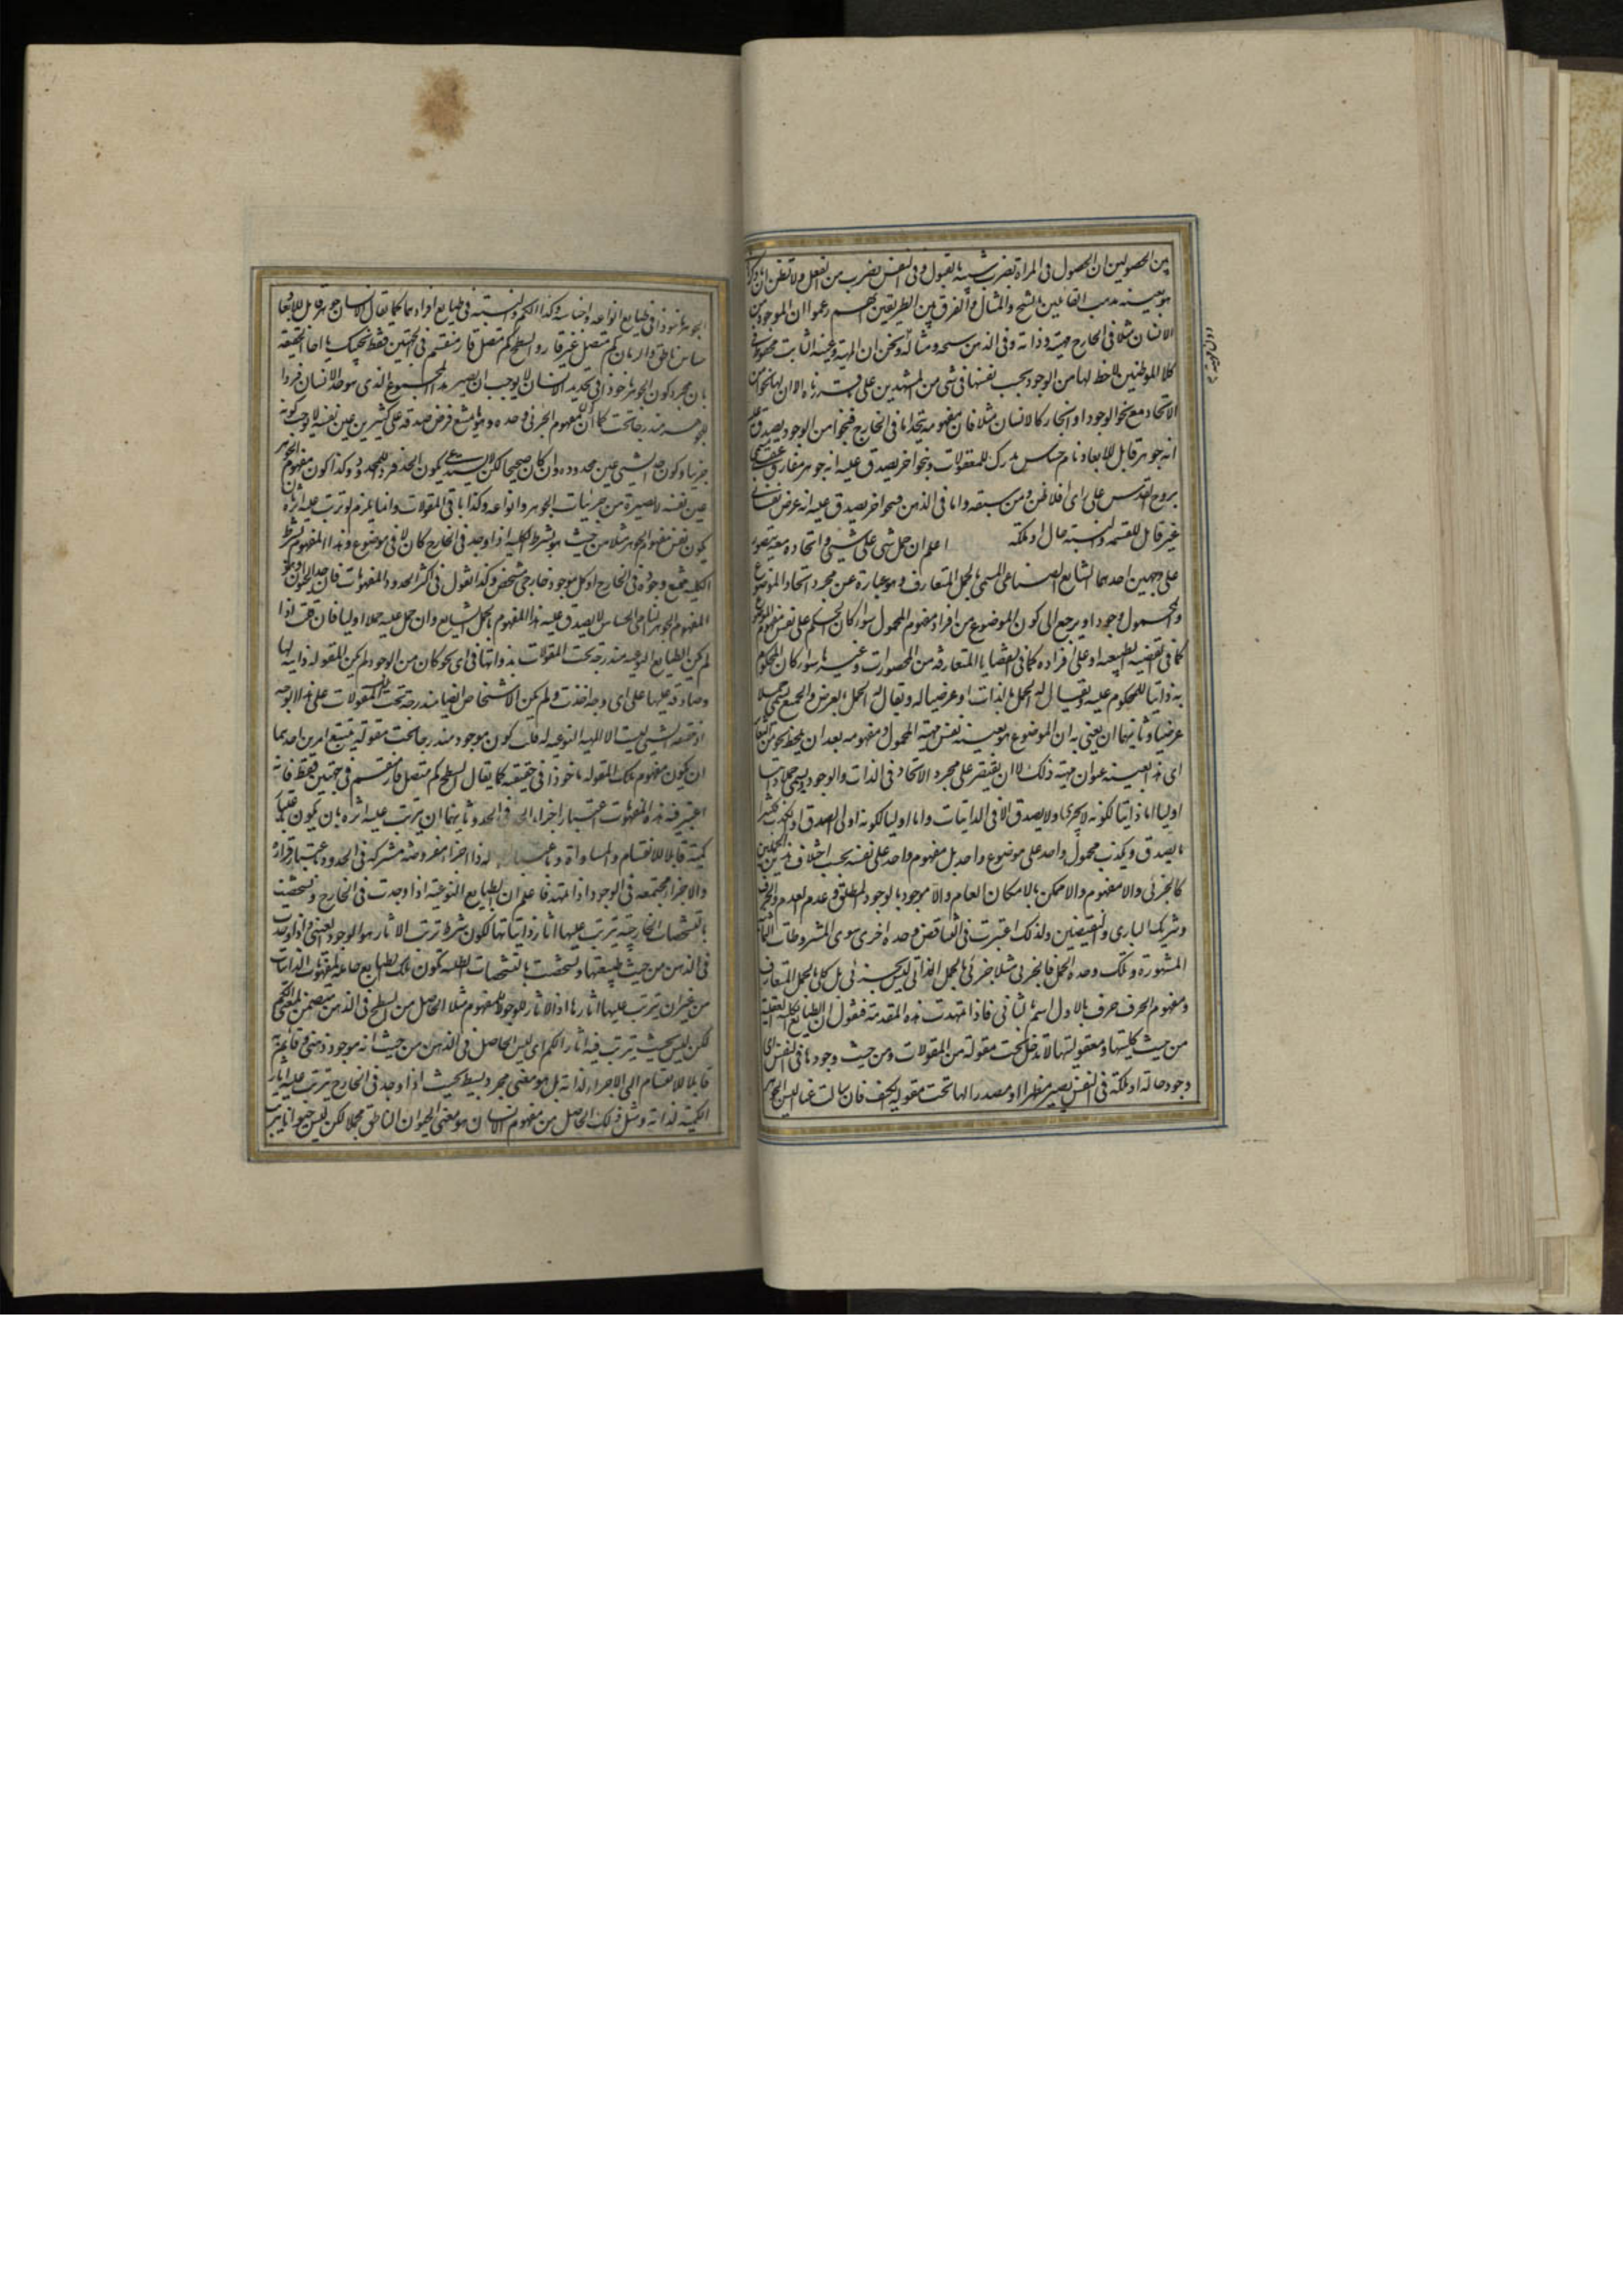 بين الحصولين ان الحصول فى المراة بضرب شبيه بالقبول وفى النفس بضرب من الفعل ولا تظنن ان ما ذكرنا
هو بعينه مذهب القائلين بالشبح والمثال والفرق بين الطريقين انهم زعموا ان الموجود من
الانسان مثلا فى الخارج مهيته وذاته وفى الذهن شبحه ومثاله ونحن ان المهية وعينه الثابت محفوظ فى
كلا الموطنين لاحظ لها من الوجود بحسب نفسها فى شى من المشهدين على ما قررناه الا ان لها نحوا من
الاتحاد مع نحو الوجود او انحاء كالانسان مثلا فان مفهومه يتحد اما فى الخارج فبنحو من الوجود يصدق عليه
انه جوهر قابل للابعاد نام حساس مدرك للمعقولات وبنحو اخر يصدق عليه انه جوهر مفارق عقلى مسمى
بروح القدس على راى افلاطن ومن سبقه واما فى الذهن فبنحو اخر يصدق عليه انه عرض نفسانى
غير قابل للقسمه والنسبة حال او ملكة اعلم ان حمل شى على شى واتحاده معه يتصور
على وجهين احدهما الشايع الصناعى المسمى بالحمل المتعارف وهو عبارة عن مجرد اتحاد الموضوع
والمحمول وجودا ويرجع الى كون الموضوع من افراد مفهوم المحمول سواء كان الحكم على نفس مفهوم الموضوع
كما فى القضيه الطبيعيه او على افراده كما فى القضايا المتعارفه من المحصورات وغيرها سواء كان المحكوم
به ذاتيا للمحكوم عليه ويقال له الحمل بالذات او عرضيا له ويقال له الحمل بالعرض والجميع يسمى حملا
عرضيا وثانيهما ان يعنى به ان الموضوع هو بعينه نفس مهية المحمول ومفهومه بعد ان يلحظ نحو من التغاير
اى هذا بعينه عنوان مهية ذلك لا ان يقتصر على مجرد الاتحاد فى الذات والوجود ويسمى حملا ذاتيا
اوليا اما ذاتيا لكونه لا يجرى ولا يصدق الا فى الذاتيات واما اوليا لكونه اولى الصدق او الكذب فكثيرا
ما يصدق ويكذب محمول واحد على موضوع واحد بل مفهوم واحد على نفسه بحسب اختلاف هذين الحملين
كالجزئى واللا مفهوم واللا ممكن بالامكان العام واللا موجود بالوجود المطلق وعدم العدم والحرف
وشريك البارى والنقيضين ولذلك اعتبرت فى التناقض وحده اخرى سوى المشروطات الثمانية
المشهورة وتلك وحدة الحمل فالجزئى مثلا جزئى بالحمل الذاتى ليس بجزئى بل كلى بالحمل المتعارف
ومفهوم الحرف حرف بالاول اسم بالثانى فاذا تمهدت هذه المقدمة فنقول ان الطبايع الكليه العقلية
من حيث كليتها ومعقوليتها لا تدخل تحت مقولة من المقولات ومن حيث وجودها فى النفس اى
وجود حالة او ملكة فى النفس يصير مظهرا او مصدرا لها تحت مقولة الكيف فان سالت عنا اليس الجوهر
الجوهر ماخوذا فى طبايع انواعه واجناسه وكذا الكم والنسبة فى طبايع افرادهما كما يقال الانسان جوهر قابل للابعاد
حساس ناطق والزمان كم متصل غير قار والسطح كم متصل قار منقسم فى الجهتين فقط نجيبك يا اخا الحقيقة
بان مجرد كون الجوهر ماخوذا فى تحديد الانسان لا يوجب ان يصير هذا المجموع الذى هو حد الانسان فردا
للجوهر مندرجا تحته كما ان مفهوم الجزئى وحده وهو ما يمتنع فرض صدقه على كثيرين عين نفسه لا يوجب كونه
جزئيا وكون حد الشى عين محدوده وان كان صحيحا لكن لا يستدعى كون الحد فردا للمحدود وكذا كون مفهوم الجوهر
عين نفسه لا يصيره من جزئيات الجوهر وانواعه وكذا باقى المقولات وانما يلزم لو ترتب عليه اثره بان
يكون نفس مفهوم الجوهر مثلا من حيث هو بشرط الكليه اذا وجد فى الخارج كان لا فى موضوع وهذا المفهوم بشرط
الكليه يمتنع وجوده فى الخارج اذ كل موجود خارجى مشخص وكذا نقول فى اكثر الحدود والمفهومات فان حد الحيوان وهو
المفهوم الجوهر النامى الحساس لا يصدق عليه هذا المفهوم بالحمل الشايع وان حمل عليه حملا اوليا فان قلت اذا
لم يكن الطبايع النوعيه مندرجة تحت المقولات بذواتها فى اى نحو كان من الوجود لم يكن المقولة ذاتية لها
وصادقه عليها على اى وجه اخذت ولم يكن الاشخاص ايضا مندرجة تحت تلك المقولات على هذا الوجه
اذ حقيقة الشى ليست الا المهيه النوعيه له قلت كون موجود مندرجا تحت مقولة يستتبع امرين احدهما
ان يكون مفهوم تلك المقوله ماخوذا فى حقيقته كما يقال السطح كم متصل قار منقسم فى جهتين فقط فانه
اعتبر فيه هذه المفهومات اعتبار اجزاء الحد فى الحد وثانيهما ان يترتب عليه اثره بان يكون باعتبار
كميته قابلا للانقسام والمساواة وباعتبار اتصاله ذا اجزاء مفروضة مشتركه فى الحدود وباعتبار قراره
ذا اجزاء مجتمعه فى الوجود اذا تمهد هذا فاعلم ان الطبايع النوعية اذا وجدت فى الخارج وتشخصت
بالتشخصات الخارجية يترتب عليها اثار ذاتياتها لكون شرط ترتب الاثار هو الوجود العينى واذا وجدت
فى الذهن من حيث طبيعتها وتشخصت بالتشخصات الظليه تكون تلك الطبايع حاملة لمفهومات الذاتيات
من غير ان يترتب عليها اثارها اذ الاثار للوجود لا للمفهوم مثلا الحاصل من السطح فى الذهن متضمن لمعنى الكم
لكن ليس بحيث يترتب فيه اثار الكم اى ليس الحاصل فى الذهن من حيث انه موجود ذهنى وقائم به
قابلا للانقسام الى الاجزاء لذاته بل هو معنى مجرد بسيط بحيث اذا وجد فى الخارج يترتب عليه اثار
الكمية لذاته ومثل ذلك الحاصل من مفهوم الانسان هو معنى الحيوان الناطق مجملا لكن ليس حيوانا يترتب